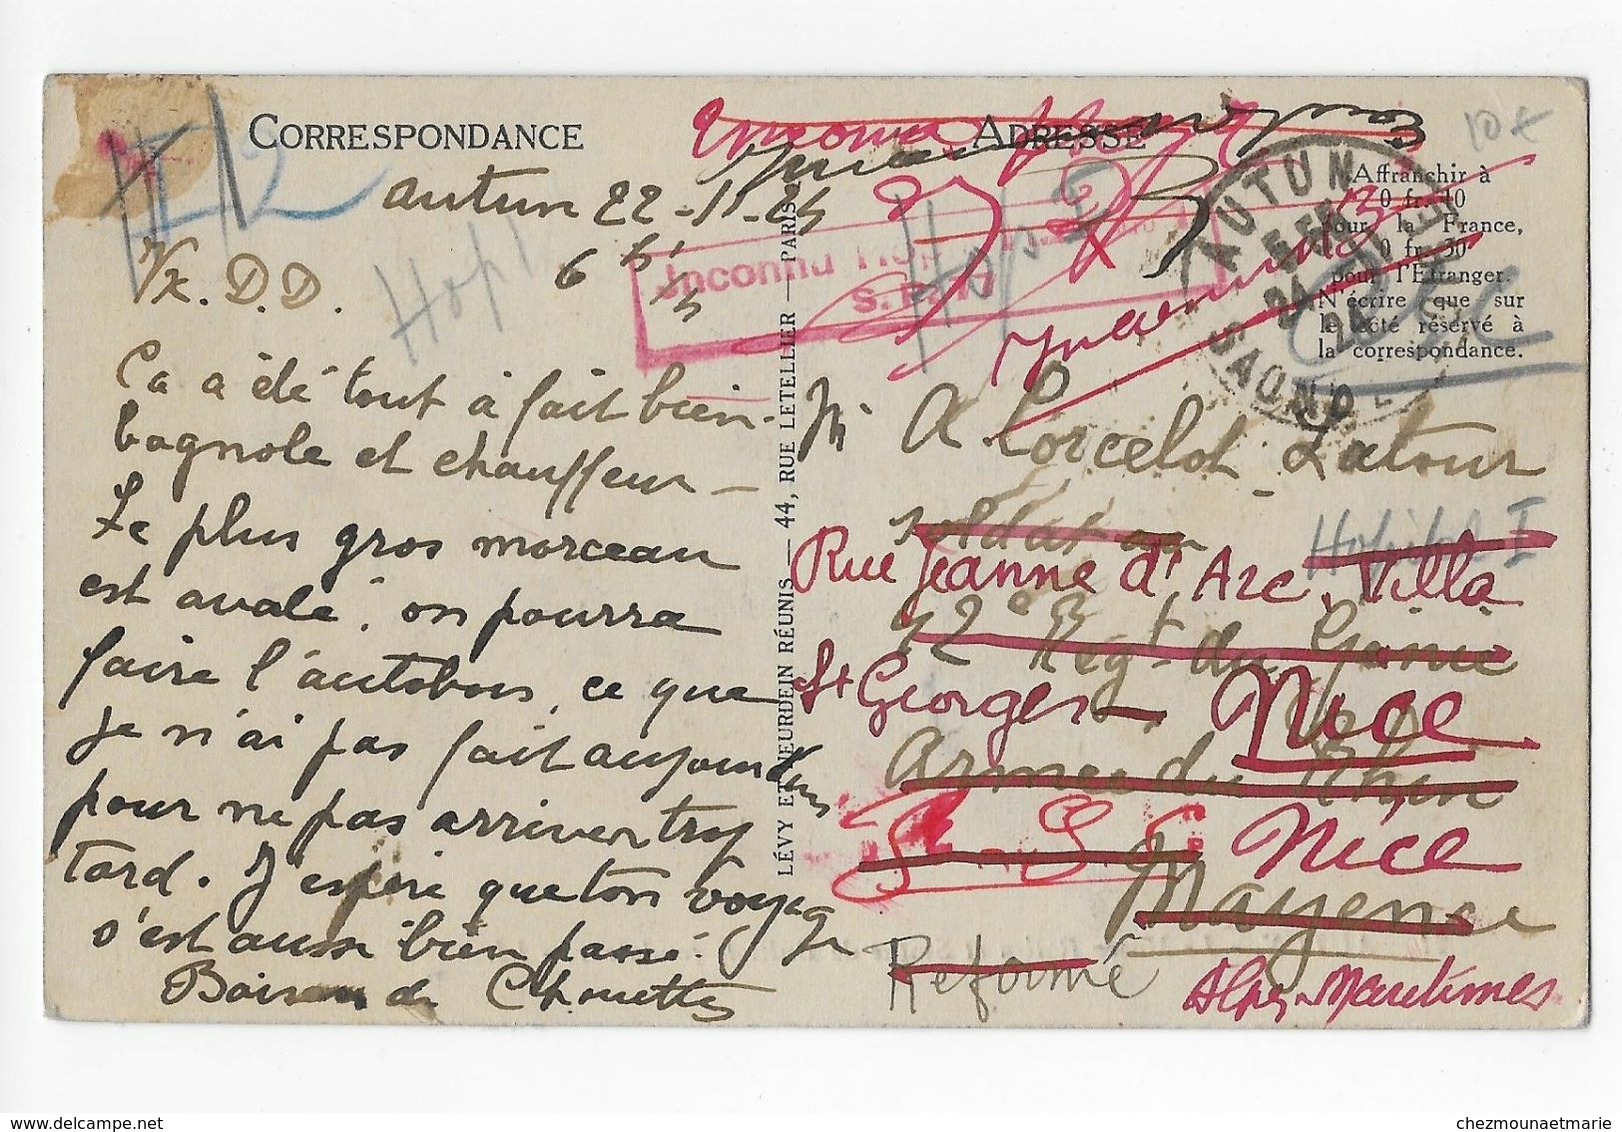 CORRESPONDANCE
autun 22-11-24
6 h 1/2
Vx. D. D.
Ça a été tout à fait bien -
bagnole et chauffeur -
Le plus gros morceau
est avalé, on pourra
faire l'autobus, ce que
je n'ai pas fait aujourd'hui
pour ne pas arriver trop
tard. J'espère que ton voyage
s'est aussi bien passé.
Chouette
Hop I
LÉVY ET NEURDEIN RÉUNIS — 44, RUE LETELLIER — PARIS
ADRESSE
Inconnu
Inconnu Hop
S.P. 77
10 €
AUTUN
24
SAONE
Affranchir à
0 fr. 10
pour la France,
0 fr. 30
pour l'Étranger.
N'écrire que sur
le côté réservé à
la correspondance.
M A Porcelot-Latour
soldat au
Hopital I
Rue Jeanne d'Arc, Villa
Regt du Génie
St Georges - Nice
Armée du Rhin
Nice
Mayence
Réformé
Alpes-Maritimes
chezmounaetmarie